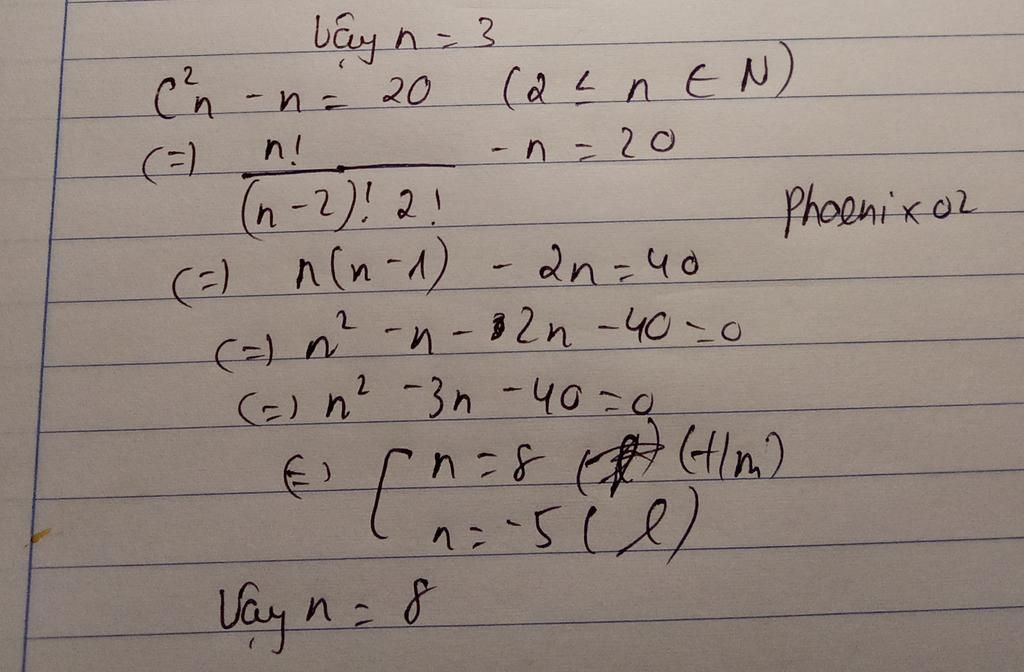 Vậy n = 3
C²n - n = 20 (2 ≤ n ∈ N)
(=) n! / (n-2)! 2! - n = 20
Phoenix02
(=) n(n-1) - 2n = 40
(=) n² - n - 2n - 40 = 0
(=) n² - 3n - 40 = 0
(=) [ n = 8 (t/m)
n = -5 (l)
Vậy n = 8